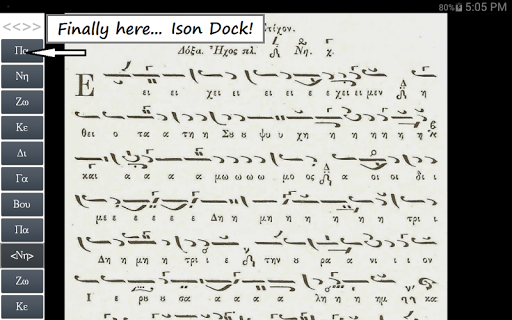 80% 5:05 PM
<<>>
Finally here... Ison Dock!
Πα
Νη
Ζω
Κε
Δι
Γα
Βου
Πα
<Νη>
Ζω
Κε
Στίχον.
Δόξα. Ἦχος πλ. Νη.
Ε ει ει χει ει ει ει ε ε χει ει μεν η η
θει ο τα α τη η Σου ψυ υ χη η η οι η η η
και α α α α μω ω ω ω μο ος α οι οι δι ι
με ε ε ε ε Δη η μη η τρι ι
Δη η μη η τρι ι ε την ου ρα α νι ι ι ον
Ι ε ρου σα α α α λη η η ημ ηη και